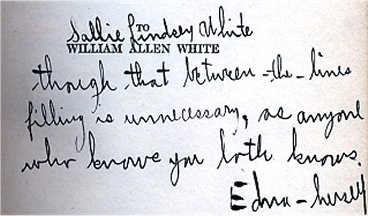 Sallie Lindsey White
TO
WILLIAM ALLEN WHITE
though that between-the-lines
filling is unnecessary, as anyone
who knows you both knows.
Edna - herself